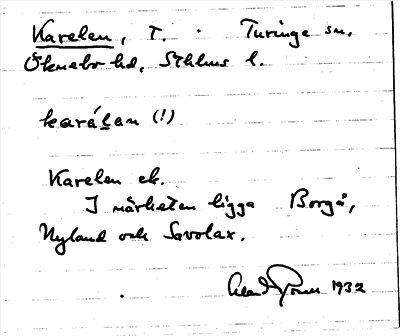 Karelen, T. . Turinge sn,
Öknebo hd, Sthlms l.
karálan (!)
Karelen ek.
I närheten ligga Borgå,
Nyland och Savolax.
1932